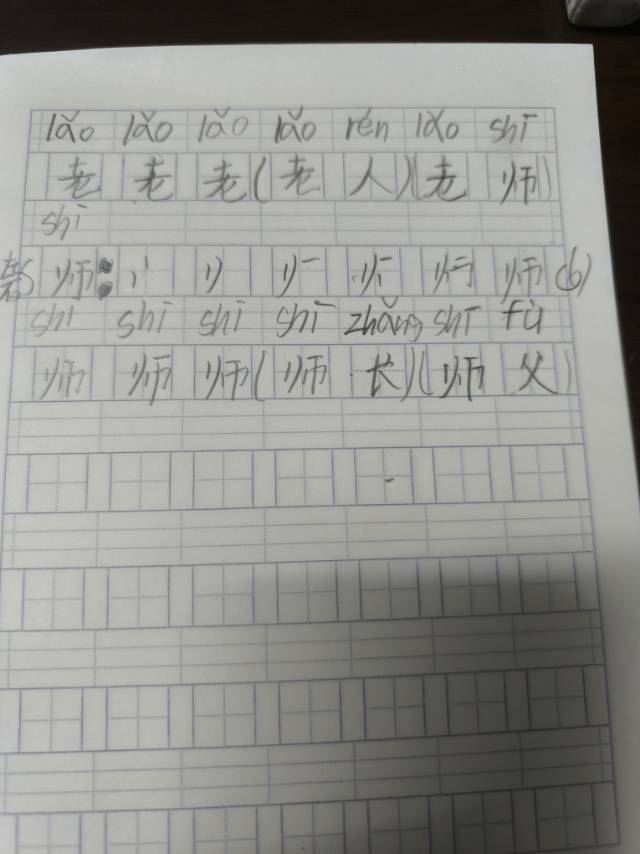 lǎo lǎo lǎo lǎo rén lǎo shī
老 老 老(老 人)(老 师)
shī
师: 师(6)
shī shī shī shī zhǎng shī fù
师 师 师(师 长)(师 父)